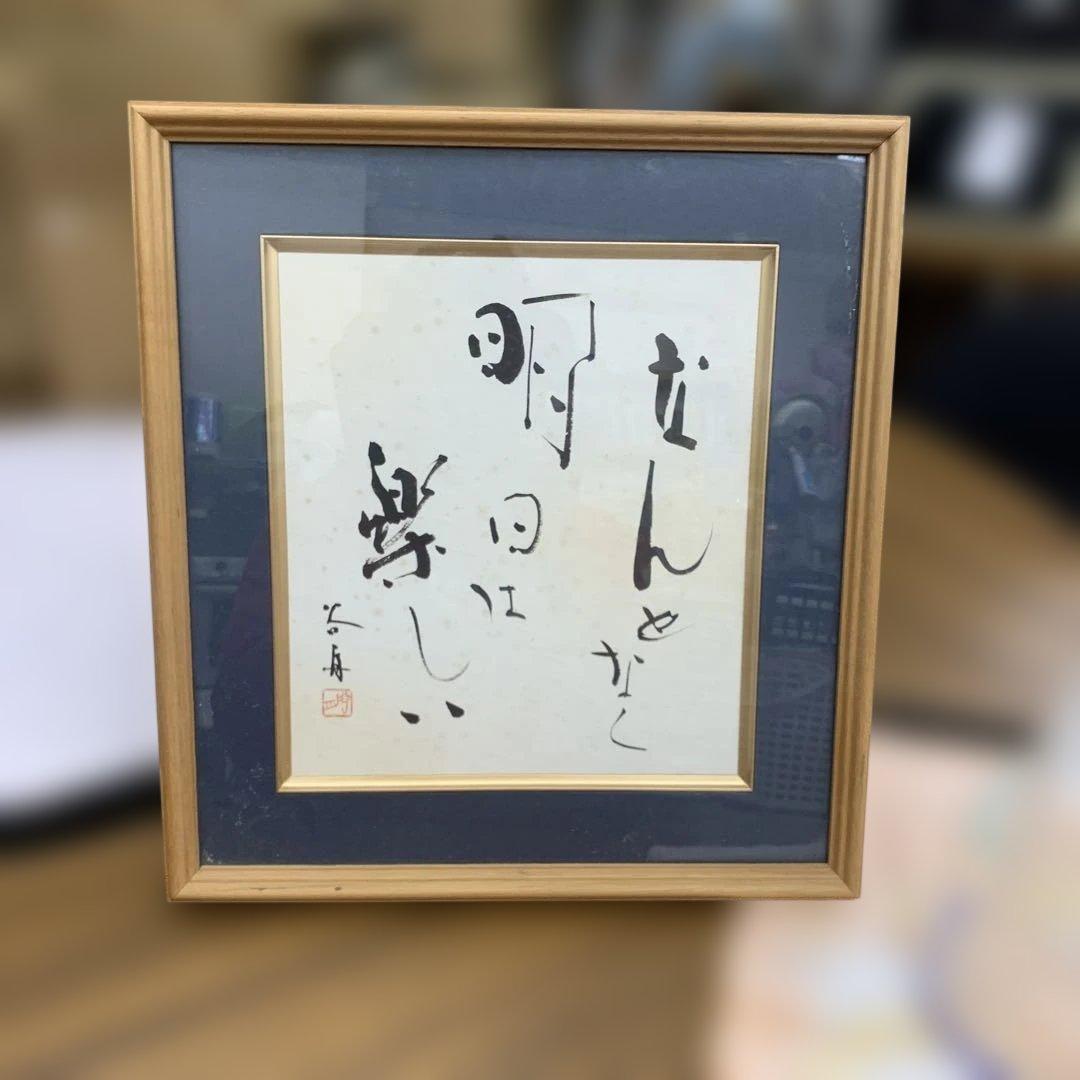 なんとなく
明日は
楽しい
谷舟